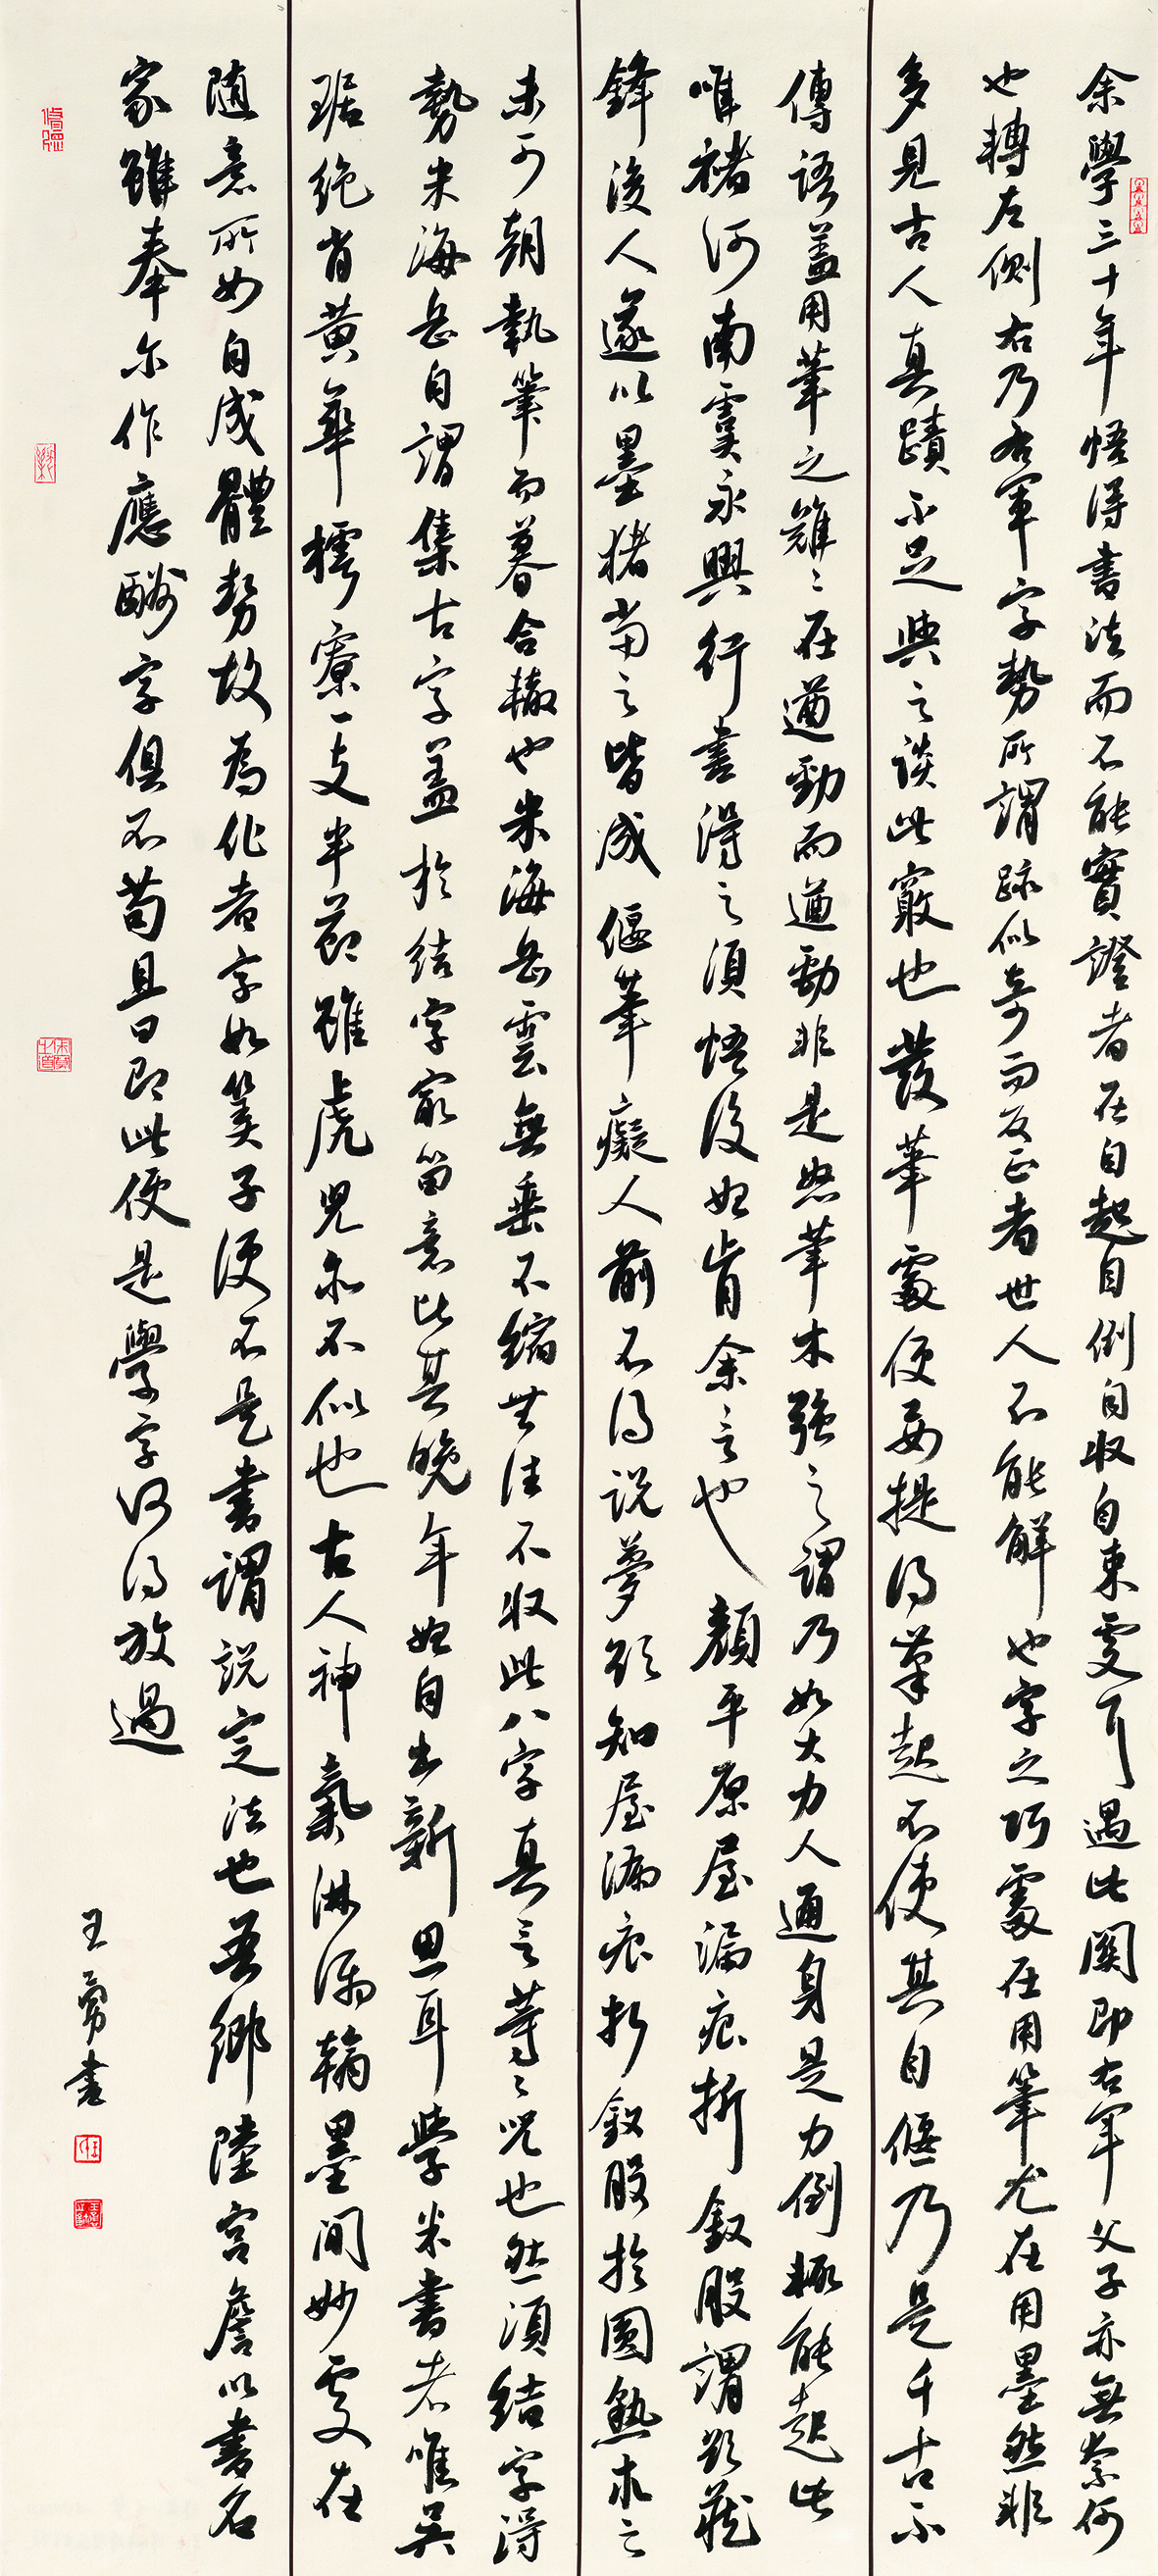 余學三十年悟得書法而不能實證者在自起自倒自收自束處耳過此關即右軍父子亦無奈何
也轉左側右乃右軍字勢所謂跡似奇而反正者世人不能解也字之巧處在用筆尤在用墨然非
多見古人真蹟不足與之談此竅也發筆處便要提得筆起不使其自偃乃是千古不
傳語蓋用筆之難難在遒勁而遒勁非是怒筆木強之謂乃如大力人通身是力倒輒能起此
唯褚河南虞永興行書得之須悟後始肯余言也顏平原屋漏痕折釵股謂欲藏
鋒後人遂以墨猪當之皆成偃筆癡人前不得說夢欲知屋漏痕折釵股於圓熟求之
未可朝執筆而暮合轍也米海岳云無垂不縮無往不收此八字真言等等咒也然須結字得
勢米海岳自謂集古字蓋於結字最留意比其晚年始自出新思耳學米書者唯吳
琚絕肖黃華樗寮一支半節雖虎兒亦不似也古人神氣淋漓翰墨間妙處在
隨意所如自成體勢故為作者字如筭子便不是書謂說定法也吾鄉陸宮詹以書名
家雖奉尔作應酬字俱不苟且曰即此便是學字何得放過
王勇書